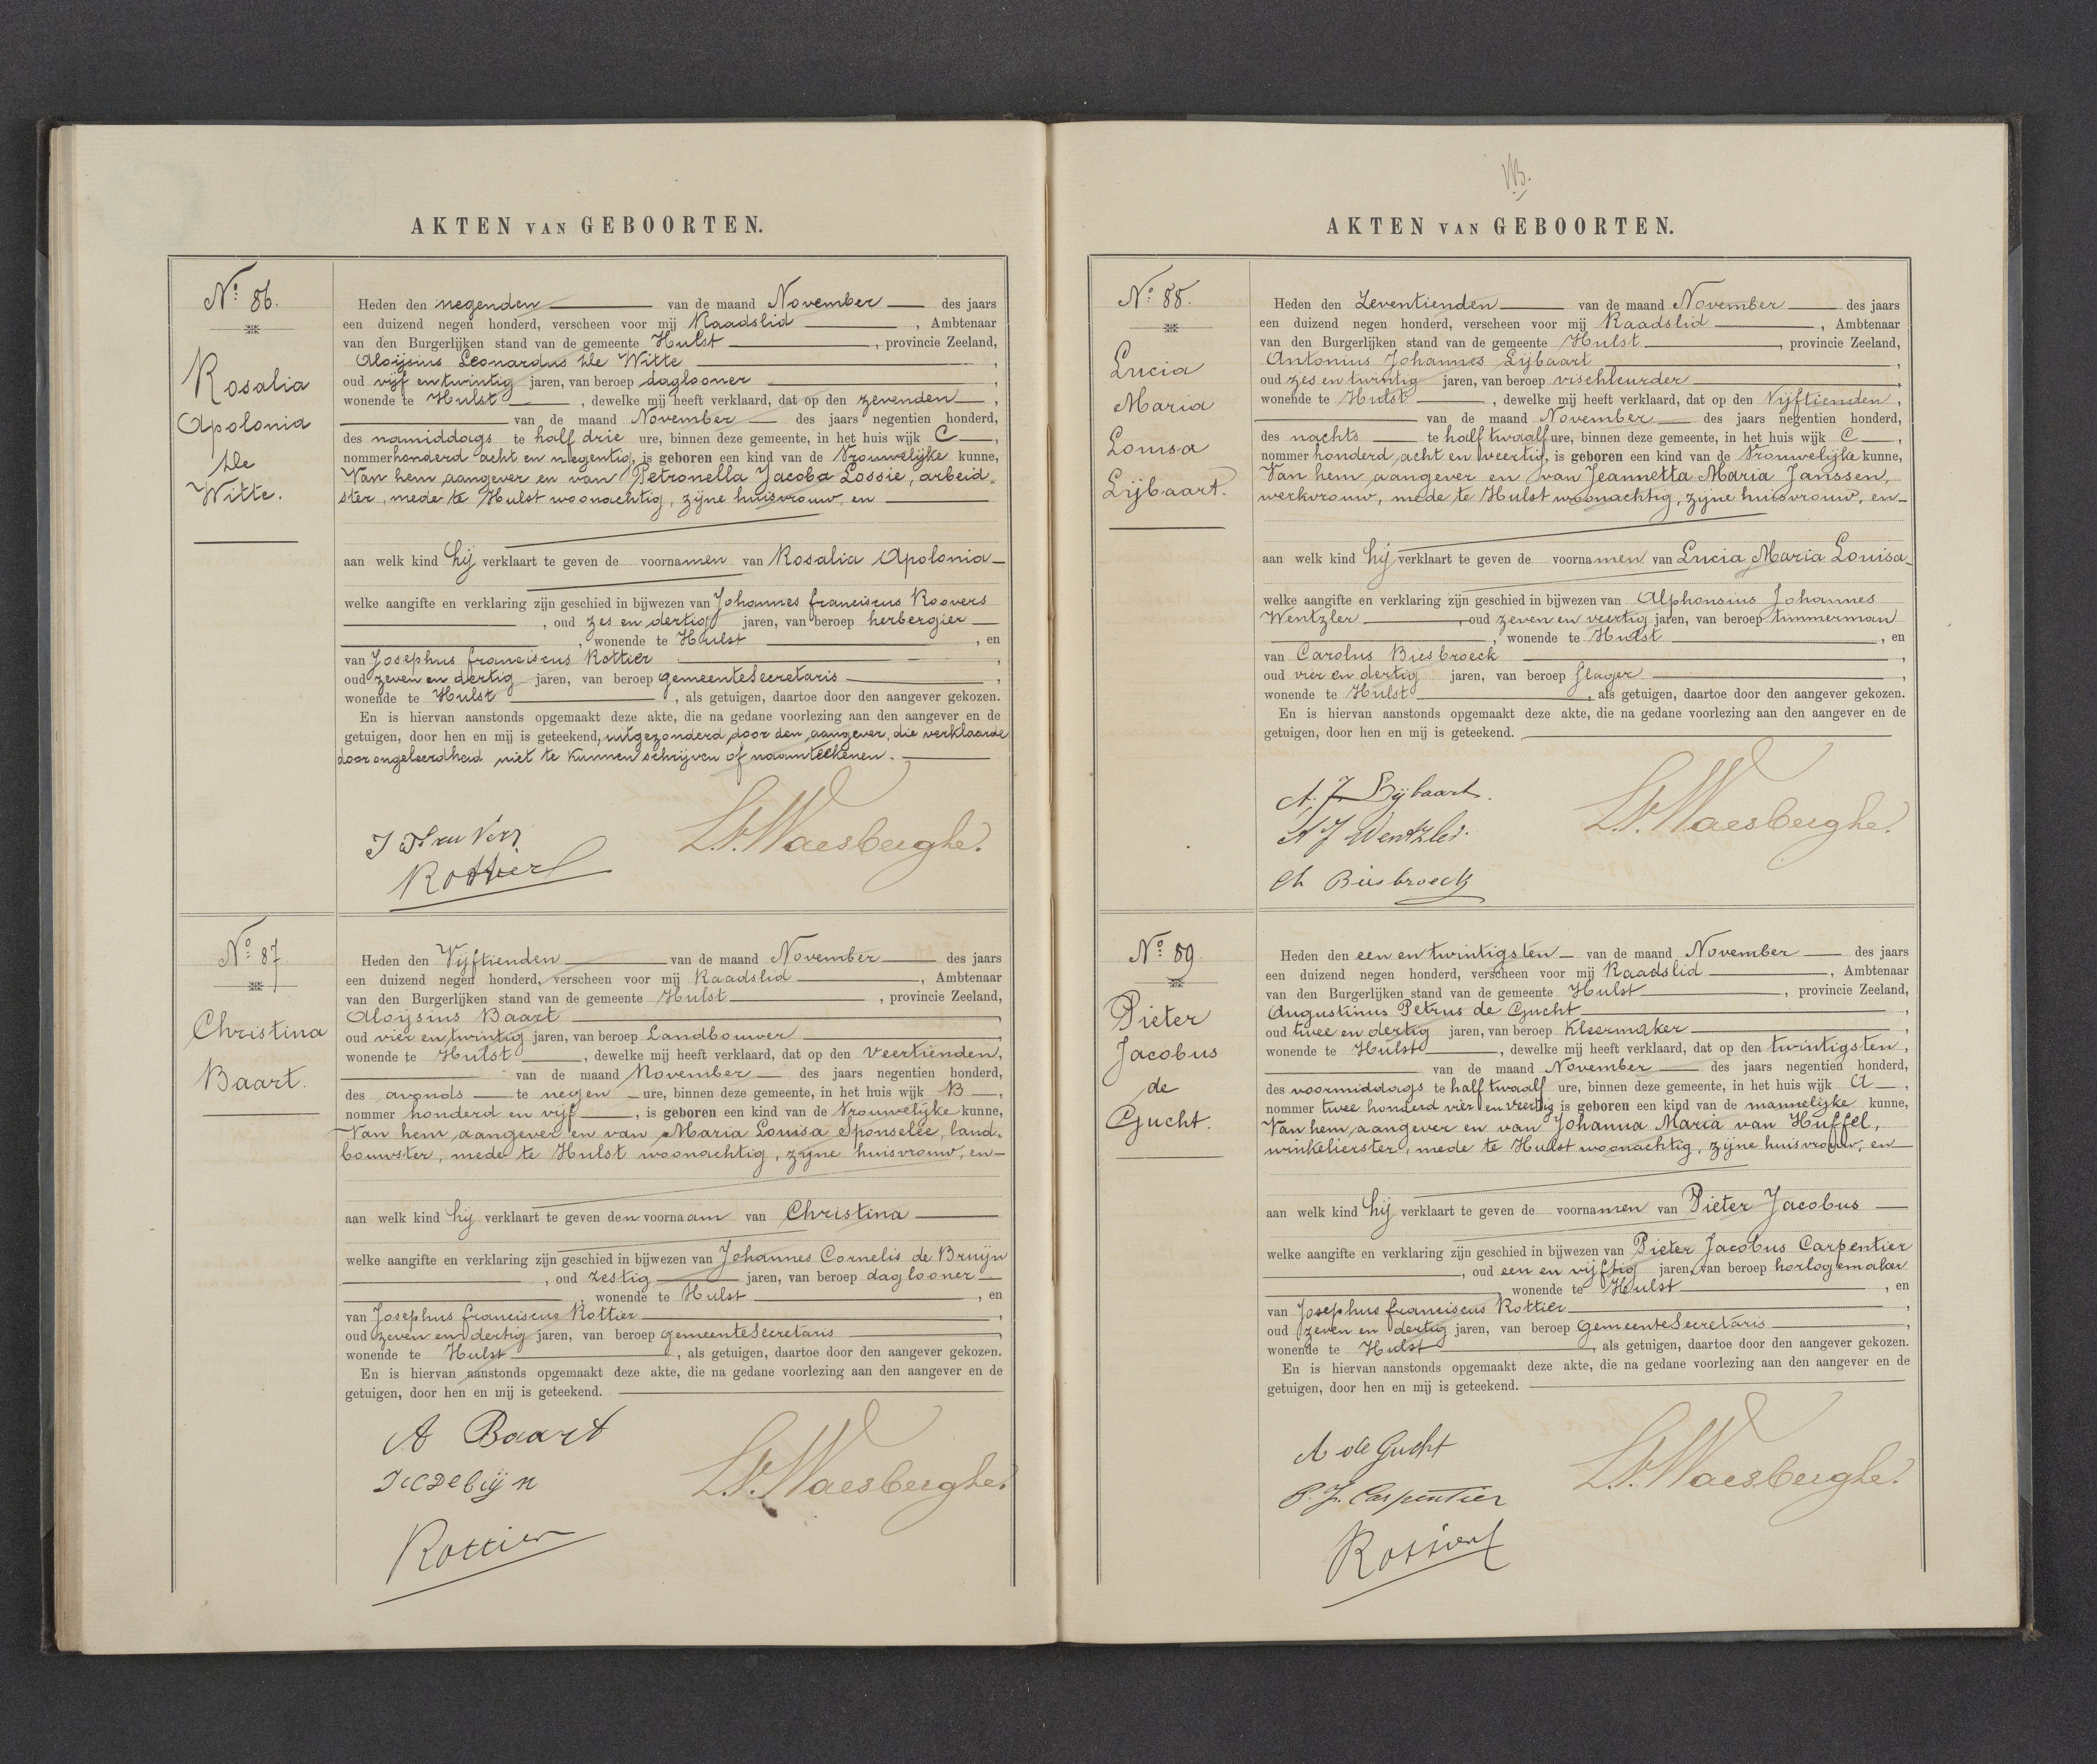 AKTEN VAN GEBOORTEN.
No. 86.
Rosalia
Apolonia
De
Witte.
Heden den negenden van de maand November des jaars
een duizend negen honderd, verscheen voor mij Raadslid, Ambtenaar
van den Burgerlijken stand van de gemeente Hulst, provincie Zeeland,
Aloijsius Leonardus De Witte,
oud vijf en twintig jaren, van beroep daglooner,
wonende te Hulst, dewelke mij heeft verklaard, dat op den zevenden,
van de maand November des jaars negentien honderd,
des namiddags te half drie ure, binnen deze gemeente, in het huis wijk C,
nommer honderd acht en negentig, is geboren een kind van de Vrouwelijke kunne,
Van hem aangever en van Petronella Jacoba Lossie, arbeid„
ster, mede te Hulst woonachtig, zijne huisvrouw, en
aan welk kind hij verklaart te geven de voornamen van Rosalia Apolonia
welke aangifte en verklaring zijn geschied in bijwezen van Johannes franciscus Roovers
, oud zes en dertig jaren, van beroep herbergier
, wonende te Hulst, en
van Josephus franciscus Rottier,
oud zeven en dertig jaren, van beroep gemeenteSecretaris,
wonende te Hulst, als getuigen, daartoe door den aangever gekozen.
En is hiervan aanstonds opgemaakt deze akte, die na gedane voorlezing aan den aangever en de
getuigen, door hen en mij is geteekend, uitgezonderd door den aangever, die verklaarde
door ongeleerdheid niet te kunnen schrijven of naamteekenen.
L.V. Waesberghe.
Rottier
No. 87
Christina
Baart.
Heden den Vijftienden van de maand November des jaars
een duizend negen honderd, verscheen voor mij Raadslid, Ambtenaar
van den Burgerlijken stand van de gemeente Hulst, provincie Zeeland,
Aloijsius Baart,
oud vier en twintig jaren, van beroep Landbouwer,
wonende te Hulst, dewelke mij heeft verklaard, dat op den Veertienden,
van de maand November des jaars negentien honderd,
des avonds te negen ure, binnen deze gemeente, in het huis wijk B,
nommer honderd en vijf, is geboren een kind van de Vrouwelijke kunne,
Van hem aangever en van Maria Louisa Sponselee, land„
bouwster, mede te Hulst woonachtig, zijne huisvrouw, en
aan welk kind hij verklaart te geven den voornaam van Christina
welke aangifte en verklaring zijn geschied in bijwezen van Johannes Cornelis de Bruijn
, oud zestig jaren, van beroep daglooner
, wonende te Hulst, en
van Josephus franciscus Rottier,
oud zeven en dertig jaren, van beroep gemeenteSecretaris,
wonende te Hulst, als getuigen, daartoe door den aangever gekozen.
En is hiervan aanstonds opgemaakt deze akte, die na gedane voorlezing aan den aangever en de
getuigen, door hen en mij is geteekend.
A Baart
L.V. Waesberghe.
Rottier
AKTEN VAN GEBOORTEN.
No. 88.
Lucia
Maria
Louisa
Lijbaart.
Heden den Zeventienden van de maand November des jaars
een duizend negen honderd, verscheen voor mij Raadslid, Ambtenaar
van den Burgerlijken stand van de gemeente Hulst, provincie Zeeland,
Antonius Johannes Lijbaart,
oud zes en twintig jaren, van beroep vischleurder,
wonende te Hulst, dewelke mij heeft verklaard, dat op den Vijftienden,
van de maand November des jaars negentien honderd,
des nachts te half twaalf ure, binnen deze gemeente, in het huis wijk C,
nommer honderd acht en veertig, is geboren een kind van de Vrouwelijke kunne,
Van hem aangever en van Jeannetta Maria Janssen,
werkvrouw, mede te Hulst woonachtig, zijne huisvrouw, en
aan welk kind hij verklaart te geven de voornamen van Lucia Maria Louisa
welke aangifte en verklaring zijn geschied in bijwezen van Alphonsius Johannes
Wentzler, oud zeven en veertig jaren, van beroep timmerman
, wonende te Hulst, en
van Carolus Biesbroeck,
oud vier en dertig jaren, van beroep slager,
wonende te Hulst, als getuigen, daartoe door den aangever gekozen.
En is hiervan aanstonds opgemaakt deze akte, die na gedane voorlezing aan den aangever en de
getuigen, door hen en mij is geteekend.
A. J. Lijbaart.
L.V. Waesberghe.
A J Wentzler.
Ch Biesbroeck
No. 89
Pieter
Jacobus
de
Gucht.
Heden den een en twintigsten van de maand November des jaars
een duizend negen honderd, verscheen voor mij Raadslid, Ambtenaar
van den Burgerlijken stand van de gemeente Hulst, provincie Zeeland,
Augustinus Petrus de Gucht,
oud twee en dertig jaren, van beroep Kleermaker,
wonende te Hulst, dewelke mij heeft verklaard, dat op den twintigsten,
van de maand November des jaars negentien honderd,
des voormiddags te half twaalf ure, binnen deze gemeente, in het huis wijk A,
nommer twee honderd vier en veertig is geboren een kind van de mannelijke kunne,
Van hem aangever en van Johanna Maria van Huffel,
winkelierster, mede te Hulst woonachtig, zijne huisvrouw, en
aan welk kind hij verklaart te geven de voornamen van Pieter Jacobus
welke aangifte en verklaring zijn geschied in bijwezen van Pieter Jacobus Carpentier
, oud een en vijftig jaren, van beroep horlogemaker
, wonende te Hulst, en
van Josephus franciscus Rottier,
oud zeven en dertig jaren, van beroep GemeenteSecretaris,
wonende te Hulst, als getuigen, daartoe door den aangever gekozen.
En is hiervan aanstonds opgemaakt deze akte, die na gedane voorlezing aan den aangever en de
getuigen, door hen en mij is geteekend.
A de Gucht
L.V. Waesberghe.
P. J. Carpentier
Rottier